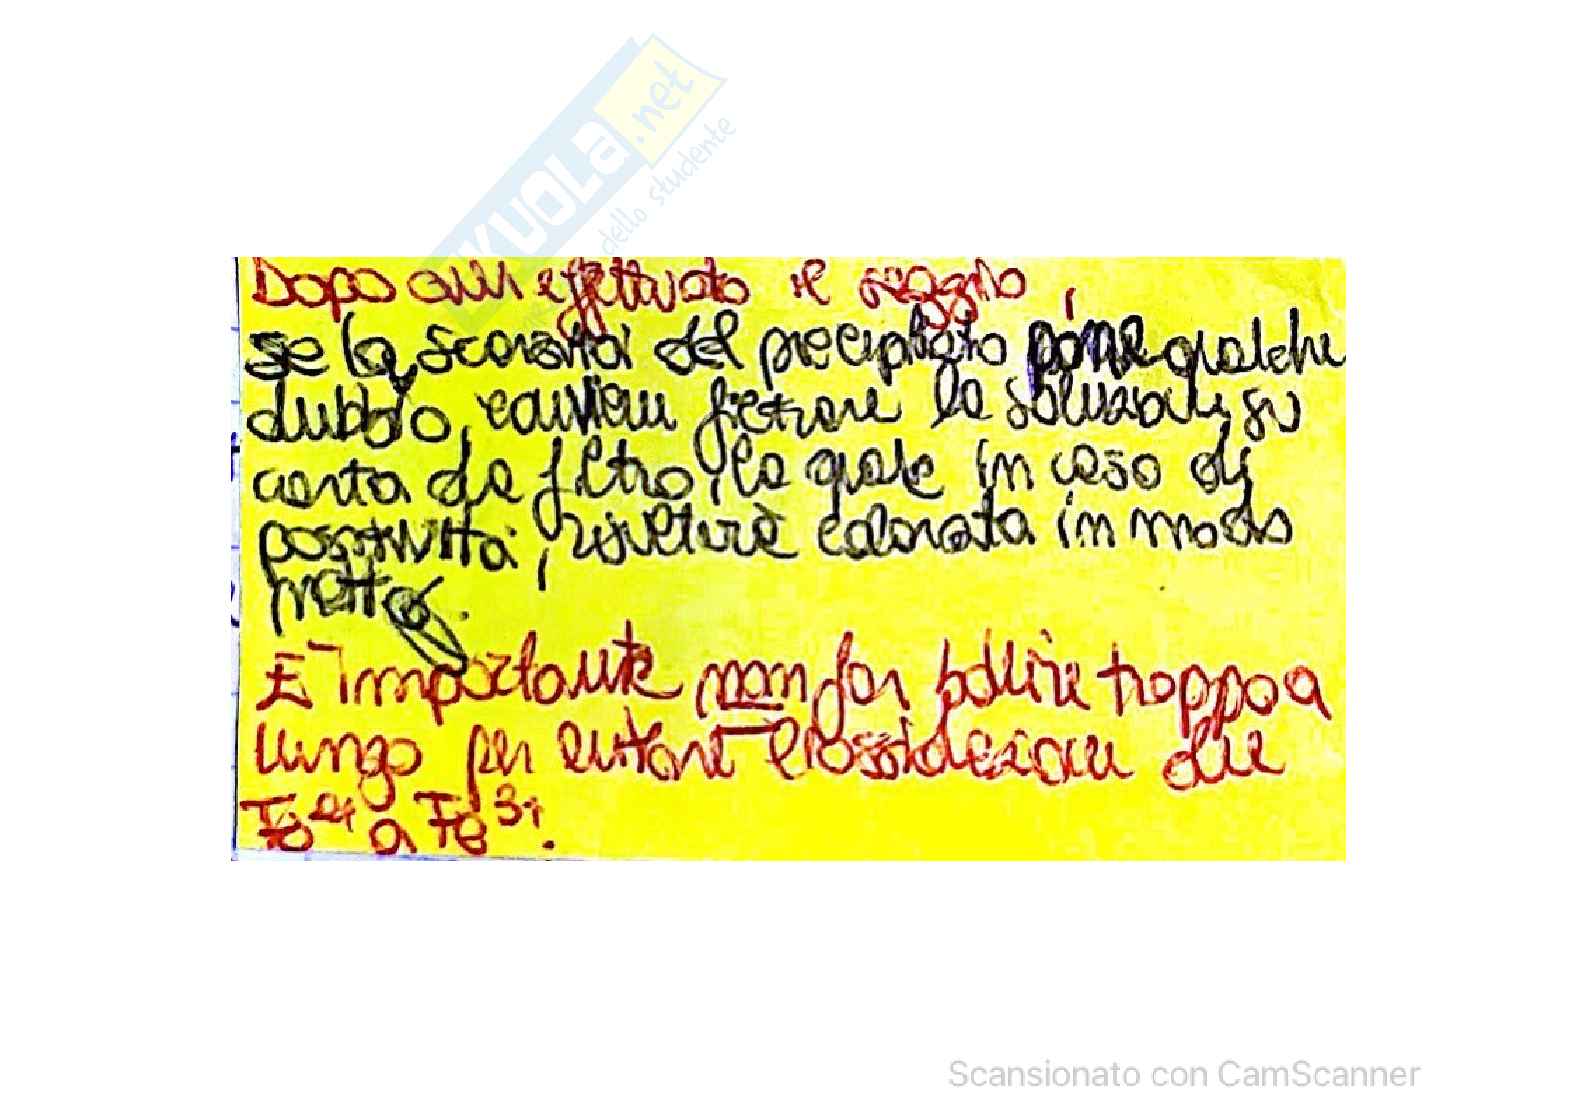 SKUOLa.net
dello studente
Dopo aver effettuato il saggio,
se la scarsità del precipitato pone qualche
dubbio, conviene filtrare la soluzione su
carta da filtro, la quale in caso di
positività, risulterà colorata in modo
netto.
E' importante non far bollire troppo a
lungo per evitare l'ossidazione del
Fe2+ a Fe3+.
Scansionato con CamScanner